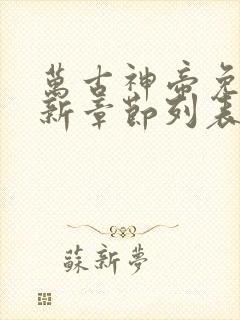 萬古神帝免
新章節列表
蘇新夢